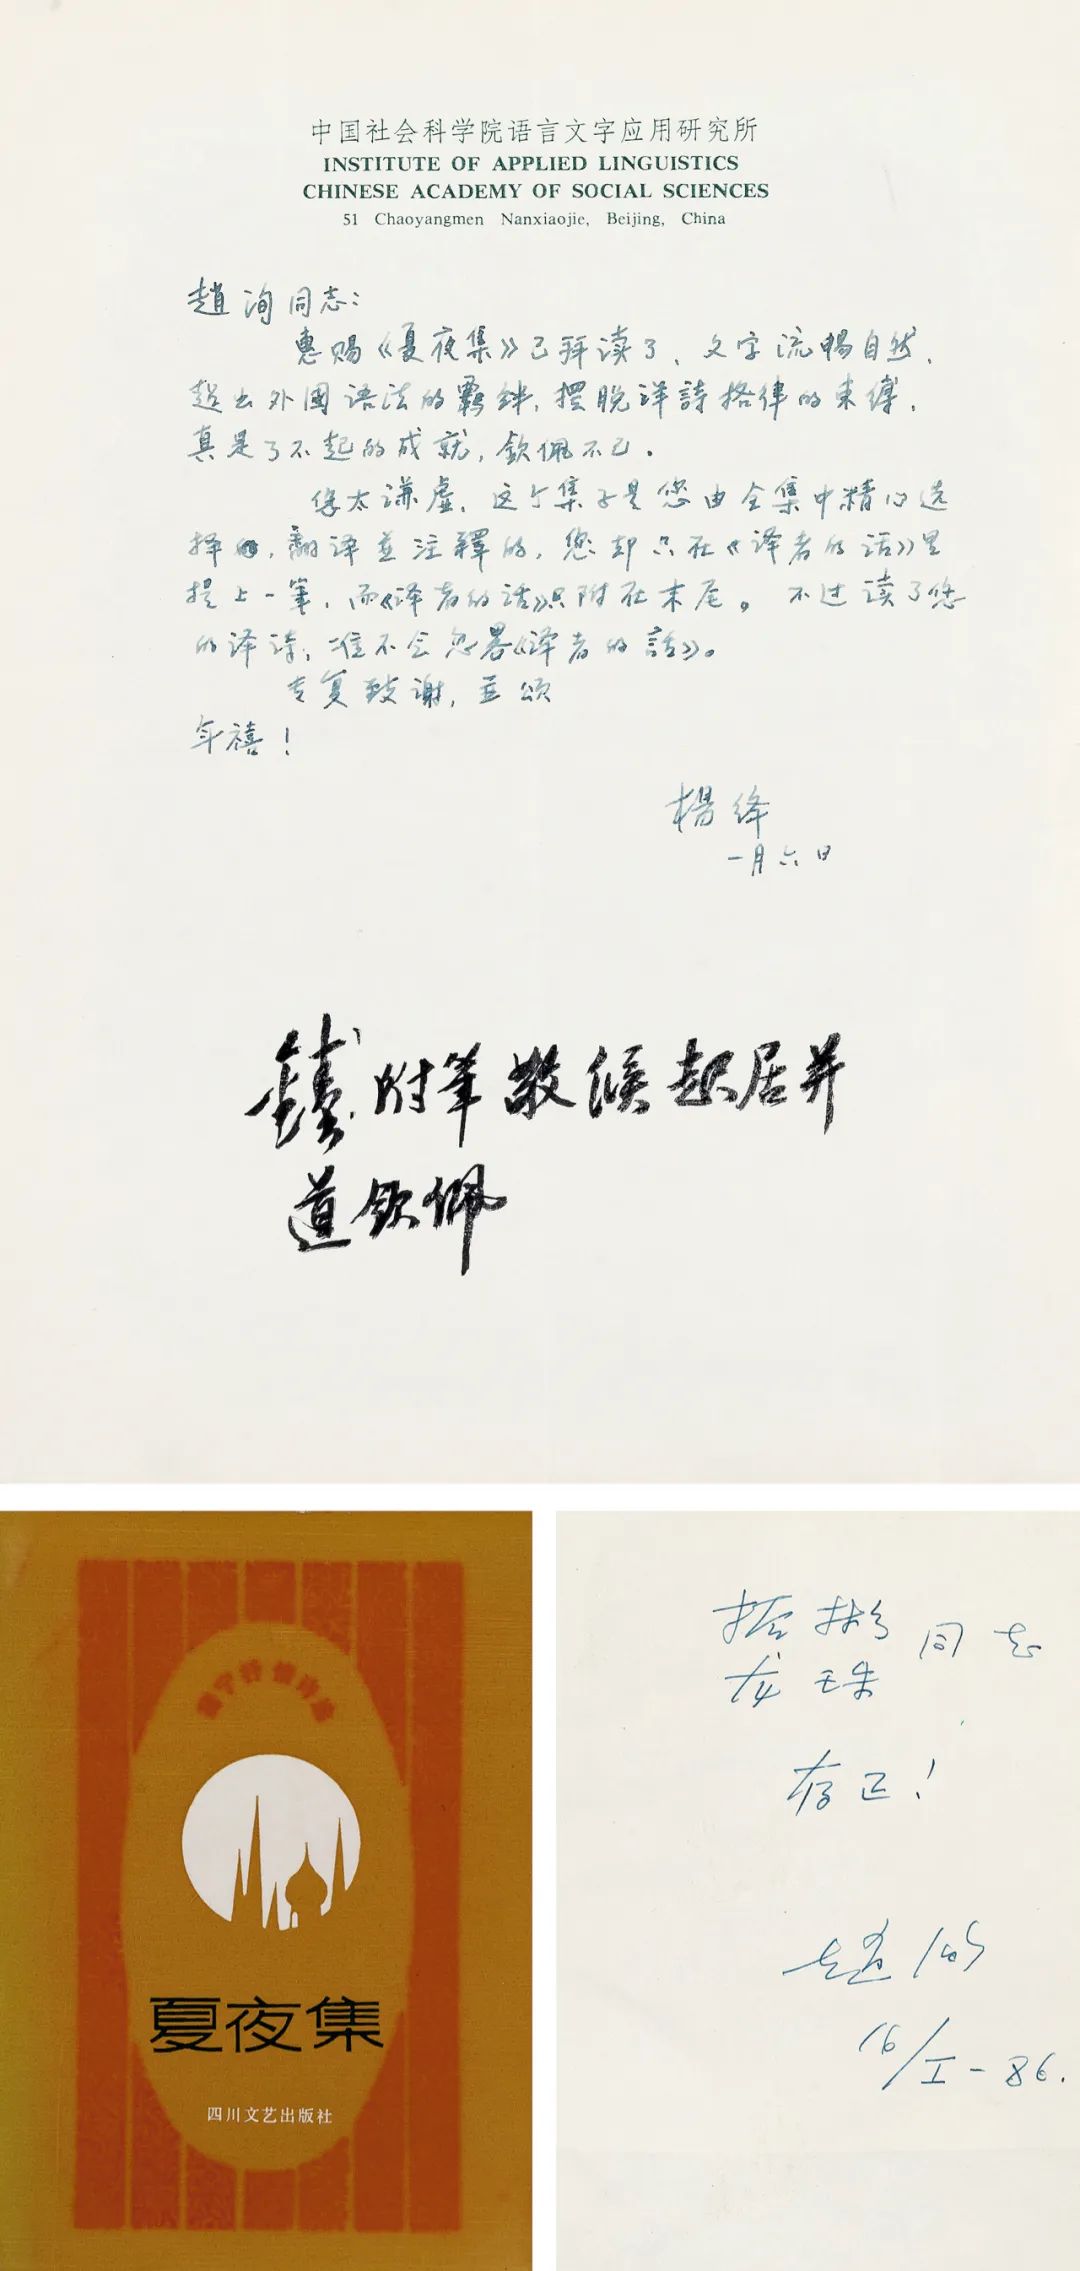 中国社会科学院语言文字应用研究所
INSTITUTE OF APPLIED LINGUISTICS
CHINESE ACADEMY OF SOCIAL SCIENCES
51 Chaoyangmen Nanxiaojie, Beijing, China
趙洵同志：
惠赐《夏夜集》已拜读了、文字流暢自然，
超出外國语法的羁绊，摆脱洋詩格律的束缚，
真是了不起的成就，欽佩不已。
您太谦虚，这个集子是您由全集中精心选
择，翻译並注釋的，您却只在《译者的话》里
提上一筆，而《译者的话》只附在末尾。不过读了您
的译诗，谁不会忽畧《译者的話》。
专复致谢，並頌
年禧！
楊绛
一月六日
錢附筆敬候起居并
道欽佩
夏夜集
四川文艺出版社
振彬
龙珠 同志
存正！
赵洵
16/I-86.